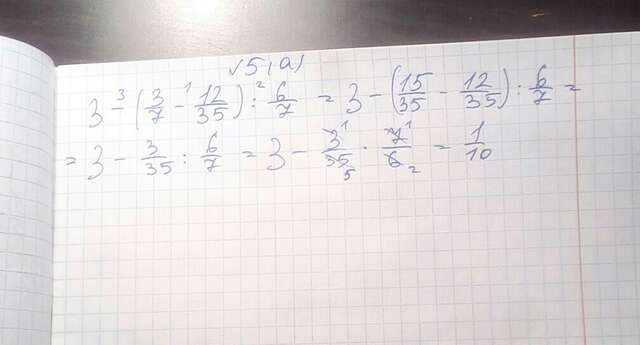 √5(а)
3 -³ (3/7 -¹ 12/35) :² 6/7 = 3 - (15/35 - 12/35) : 6/7 =
= 3 - 3/35 : 6/7 = 3 - 3¹/35₅ · 7¹/6₂ = 1/10